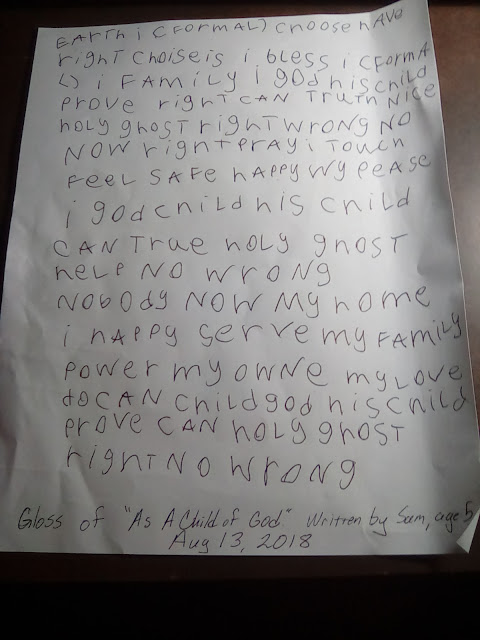 EARTH i (FORMAL) CHOOSE HAVE
right CHOiSE is i bless i (FORMA
L) i FAMiLY i gOd HiS CHiLD
PROVE right CAN TRUTH NiCE
HOLY ghOST RighT WRONg NO
NOW right PRAY i TOUCH
FEEL SAFE HAPPY WY PEASE
i gOd CHiLD HiS CHiLD
CAN TRUE HOLY ghOST
HELP NO WRONg
NObOdy NOW MY HOME
i HAPPY SERVE MY FAMiLY
POWER MY OWNE MY LOVE
dO CAN CHiLd gOd HiS CHiLD
PROVE CAN HOLY ghOST
RighT NO WRONg
Gloss of "As A Child of God" Written by Sam, age 5
Aug 13, 2018